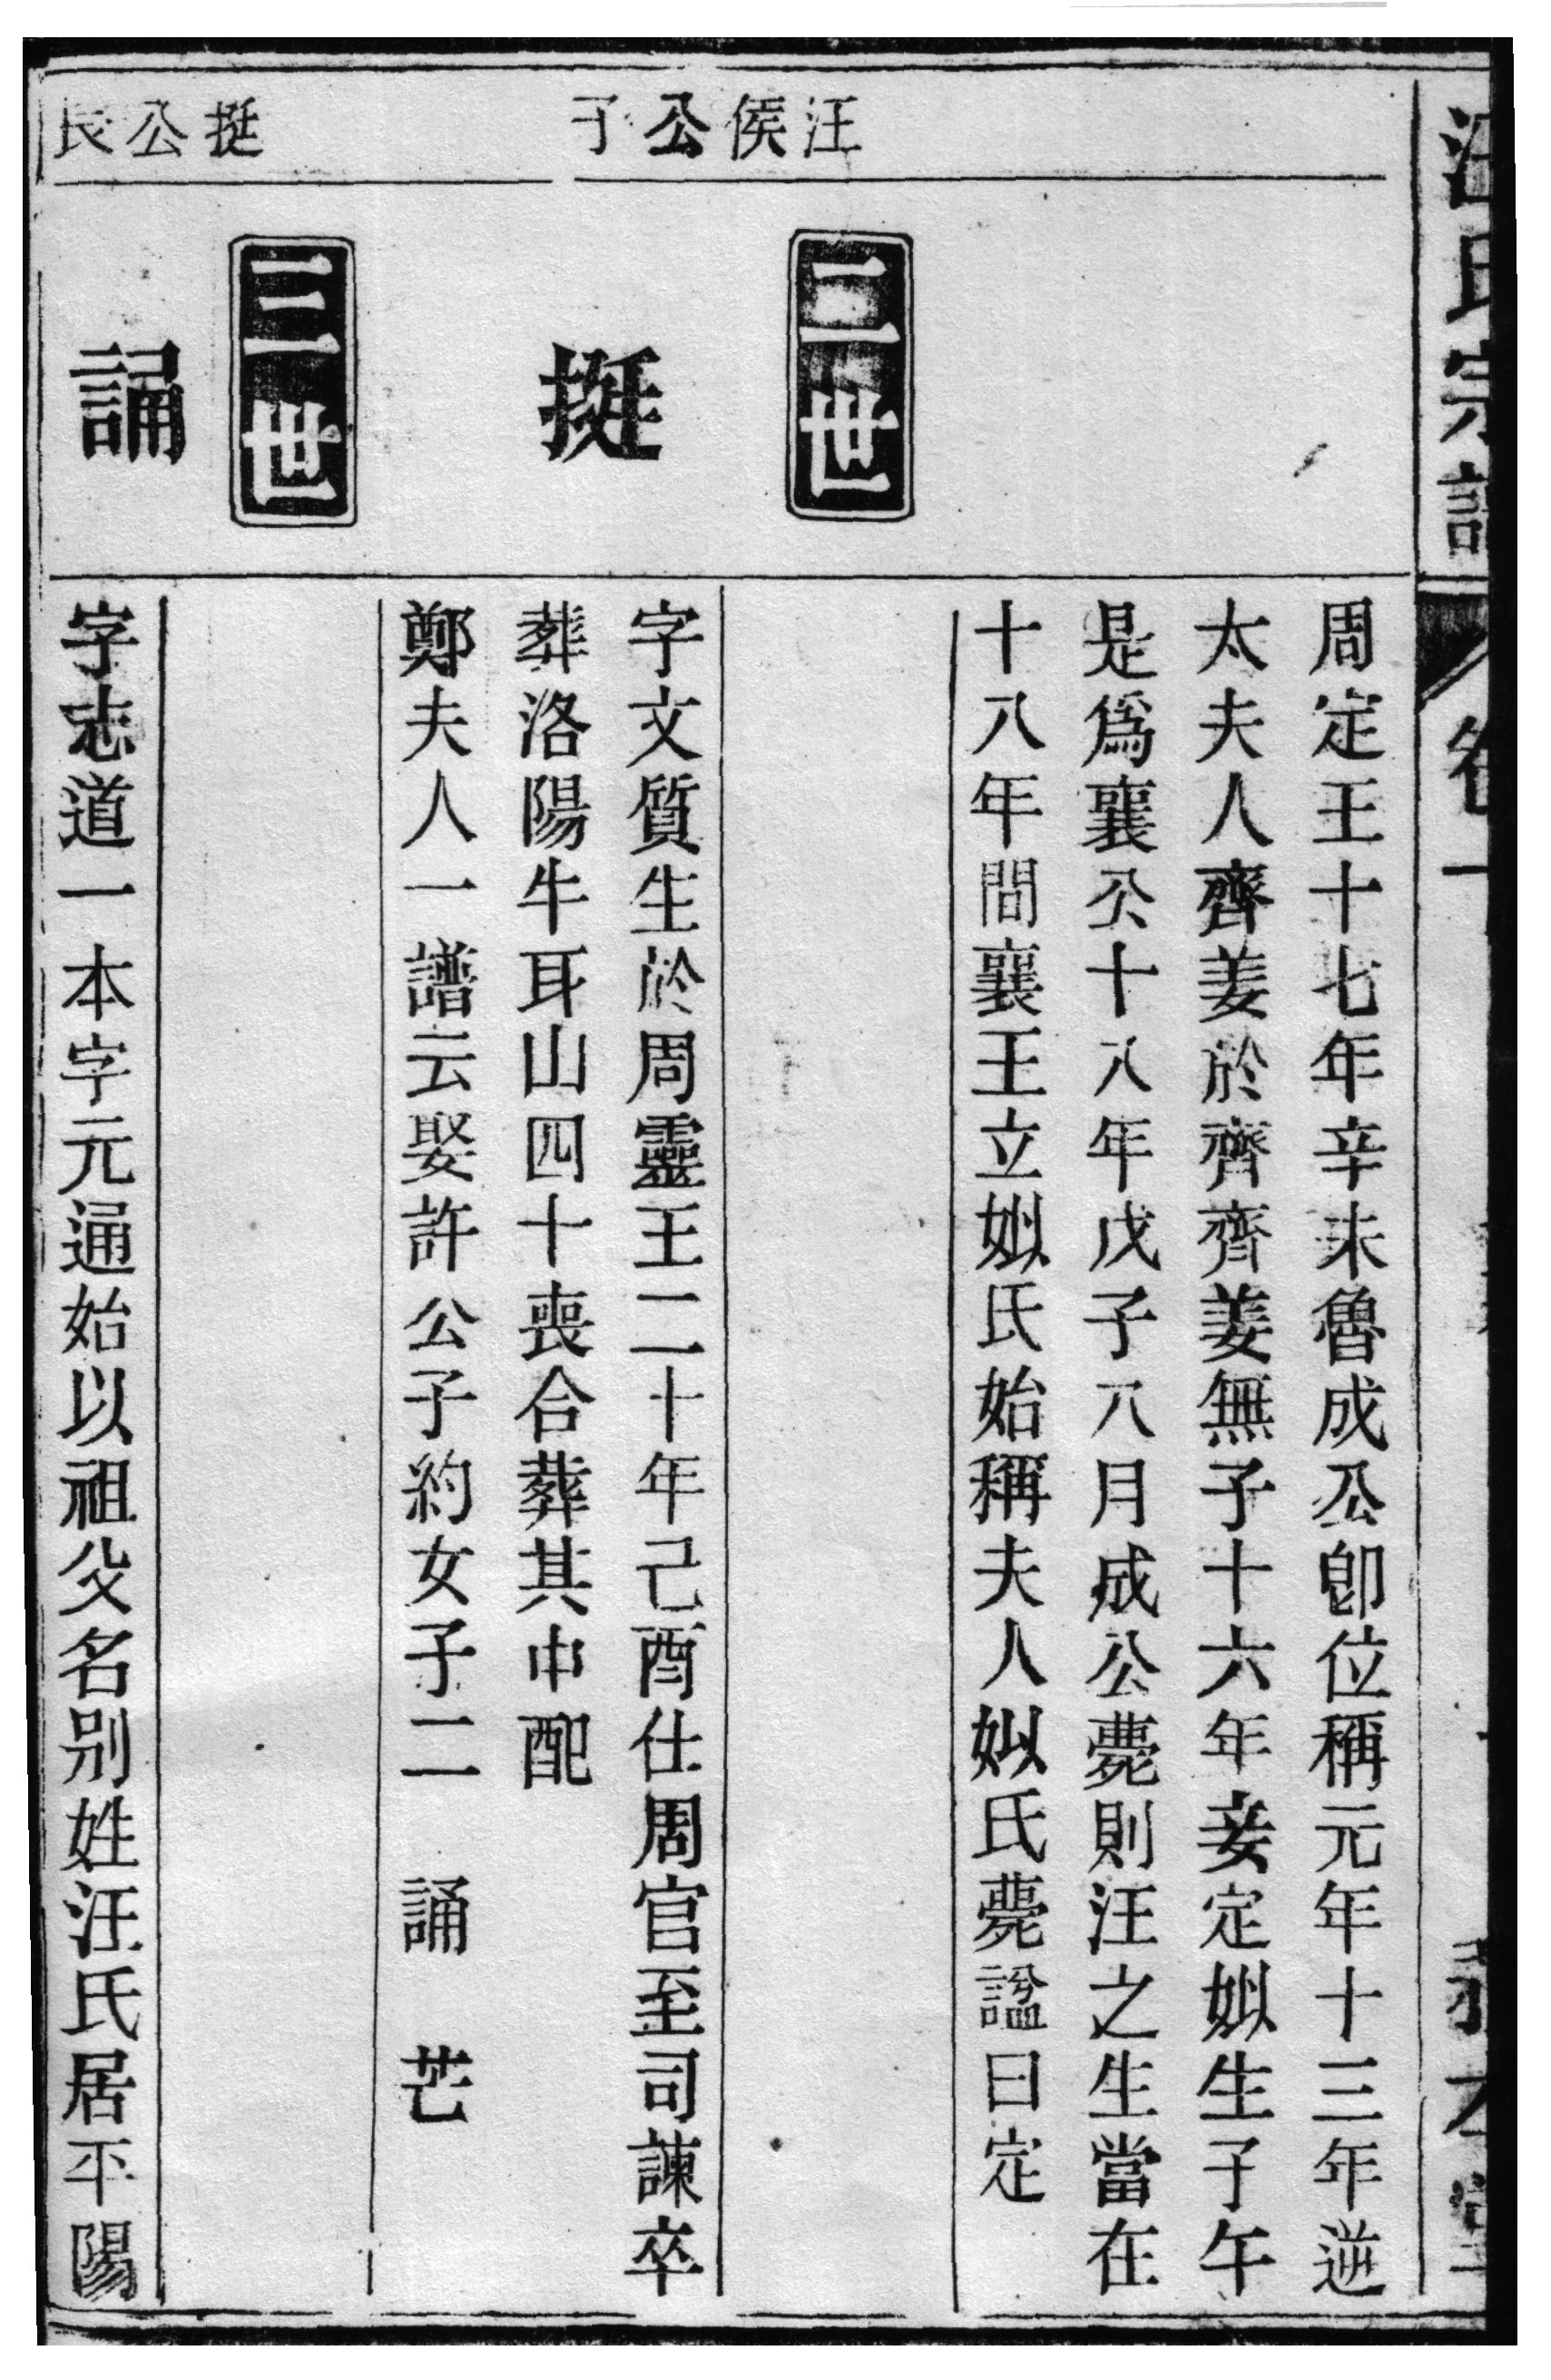 汪氏宗譜
卷一
周定王十七年辛未魯成公卽位稱元年十三年逆
太夫人齊姜於齊齊姜無子十六年妾定姒生子午
是爲襄公十八年戊子八月成公薨則汪之生當在
十八年間襄王立姒氏始稱夫人姒氏薨諡曰定
汪侯公子
二世
挺
字文質生於周靈王二十年己酉仕周官至司諫卒
葬洛陽牛耳山四十喪合葬其中配
鄭夫人一譜云娶許公子約女子二 誦 芒
挺公長
三世
誦
字志道一本字元通始以祖父名別姓汪氏居平陽